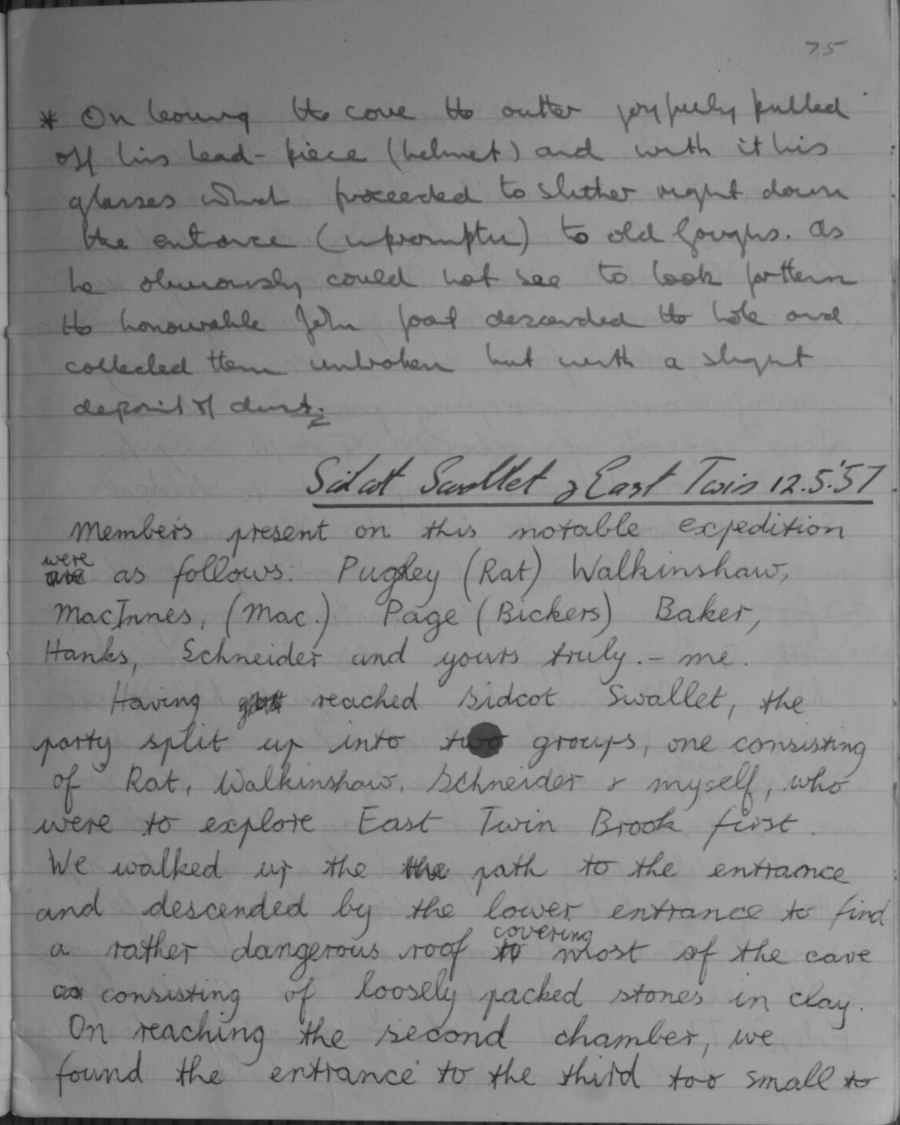 75
* On leaving the cave the author joyfully pulled
off his head-piece (helmet) and with it his
glasses which proceeded to slither right down
the entrance (impromptu) to old Goughs. As
he obviously could not see to look for them
the honourable John Joal descended the hole and
collected them unbroken but with a slight
deposit of dust.
Sidcot Swallet & East Twin 12.5.'57
Members present on this notable expedition
were as follows: Pugsley (Rat) Walkinshaw,
MacInnes, (Mac.) Page (Bickers) Baker,
Hanks, Schneider and yours truly. - me.
Having reached Sidcot Swallet, the
party split up into two groups, one consisting
of Rat, Walkinshaw, Schneider & myself, who
were to explore East Twin Brook first.
We walked up the path to the entrance
and descended by the lower entrance to find
a rather dangerous roof covering most of the cave
consisting of loosely packed stones in clay.
On reaching the second chamber, we
found the entrance to the third too small to